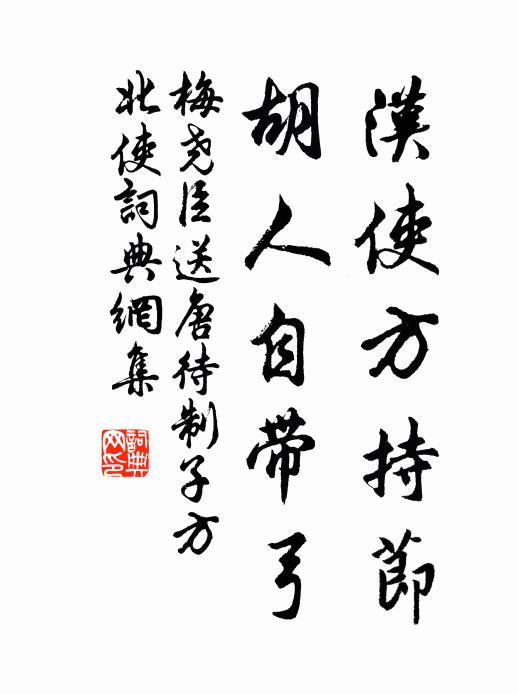 漢使方持節
胡人自帶弓
梅堯臣送唐待制子方
北使詞典網集
詞典
网印